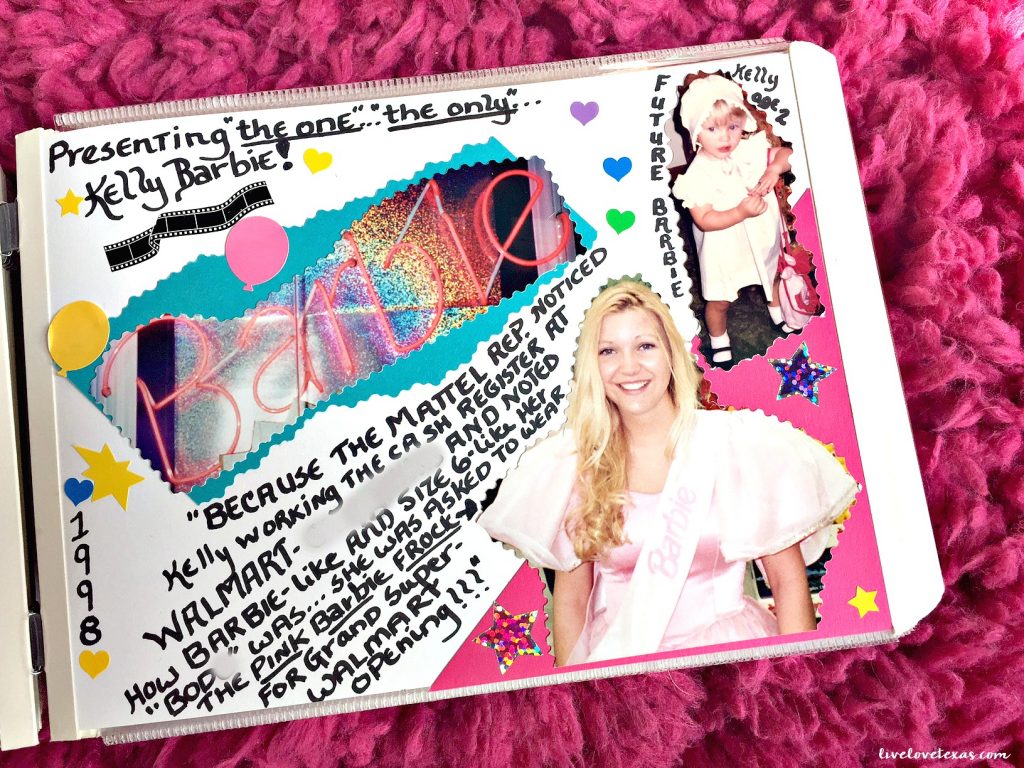 Presenting "the one"... "the only"...
Kelly Barbie!
Barbie
1998
"BECAUSE THE MATTEL REP. NOTICED
Kelly working THE CASH REGISTER AT
WALMART- AND NOTED
HOW BARBIE-LIKE AND SIZE 6-like Her
"BOD " WAS... SHE WAS ASKED TO WEAR
THE PINK Barbie FROCK→
FOR Grand Super-
WALMART
OPENING!!?"
FUTURE BARBIE
Kelly
age 2
Barbie
livelovetexas.com